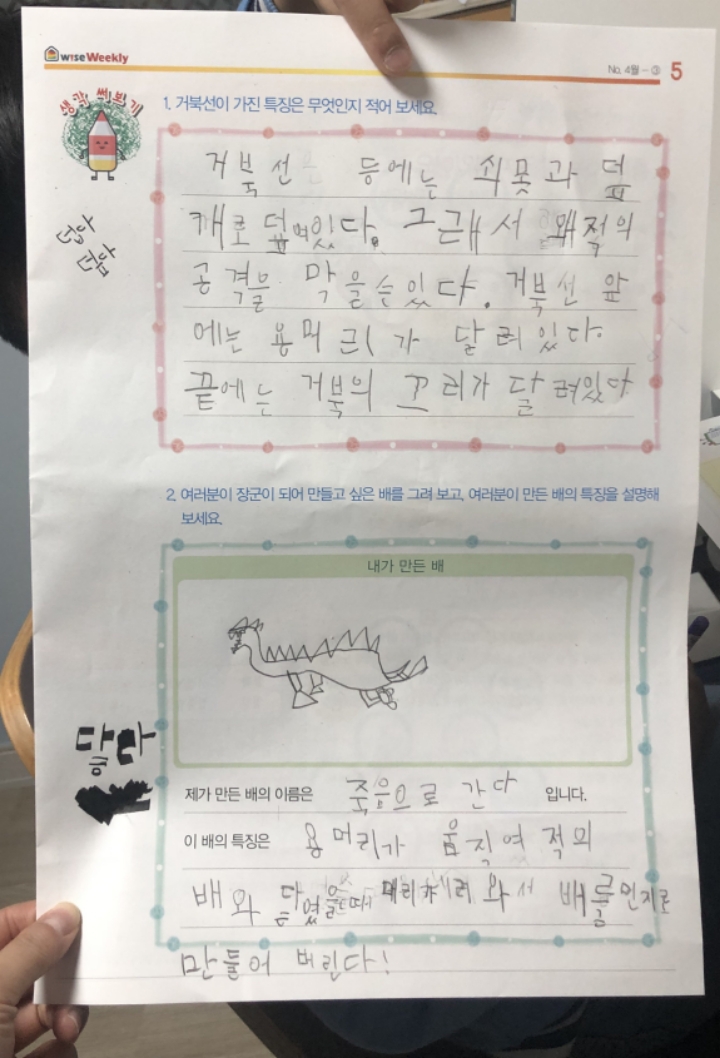 wise Weekly
No. 4월 - ③ 5
생각 써보기
1. 거북선이 가진 특징은 무엇인지 적어 보세요.
거북선 등에는 쇠못과 덮
깨로 덮여있다. 그래서 왜적의
공격을 막을 수 있다. 거북선 앞
에는 용머리가 달려있다.
끝에는 거북의 꼬리가 달려있다
2. 여러분이 장군이 되어 만들고 싶은 배를 그려 보고, 여러분이 만든 배의 특징을 설명해
보세요.
내가 만든 배
닿다
제가 만든 배의 이름은 죽음으로 간다 입니다.
이 배의 특징은 용머리가 움직여 적의
배와 닿였을때 머리가 내려와서 배를 먼지로
만들어 버린다!